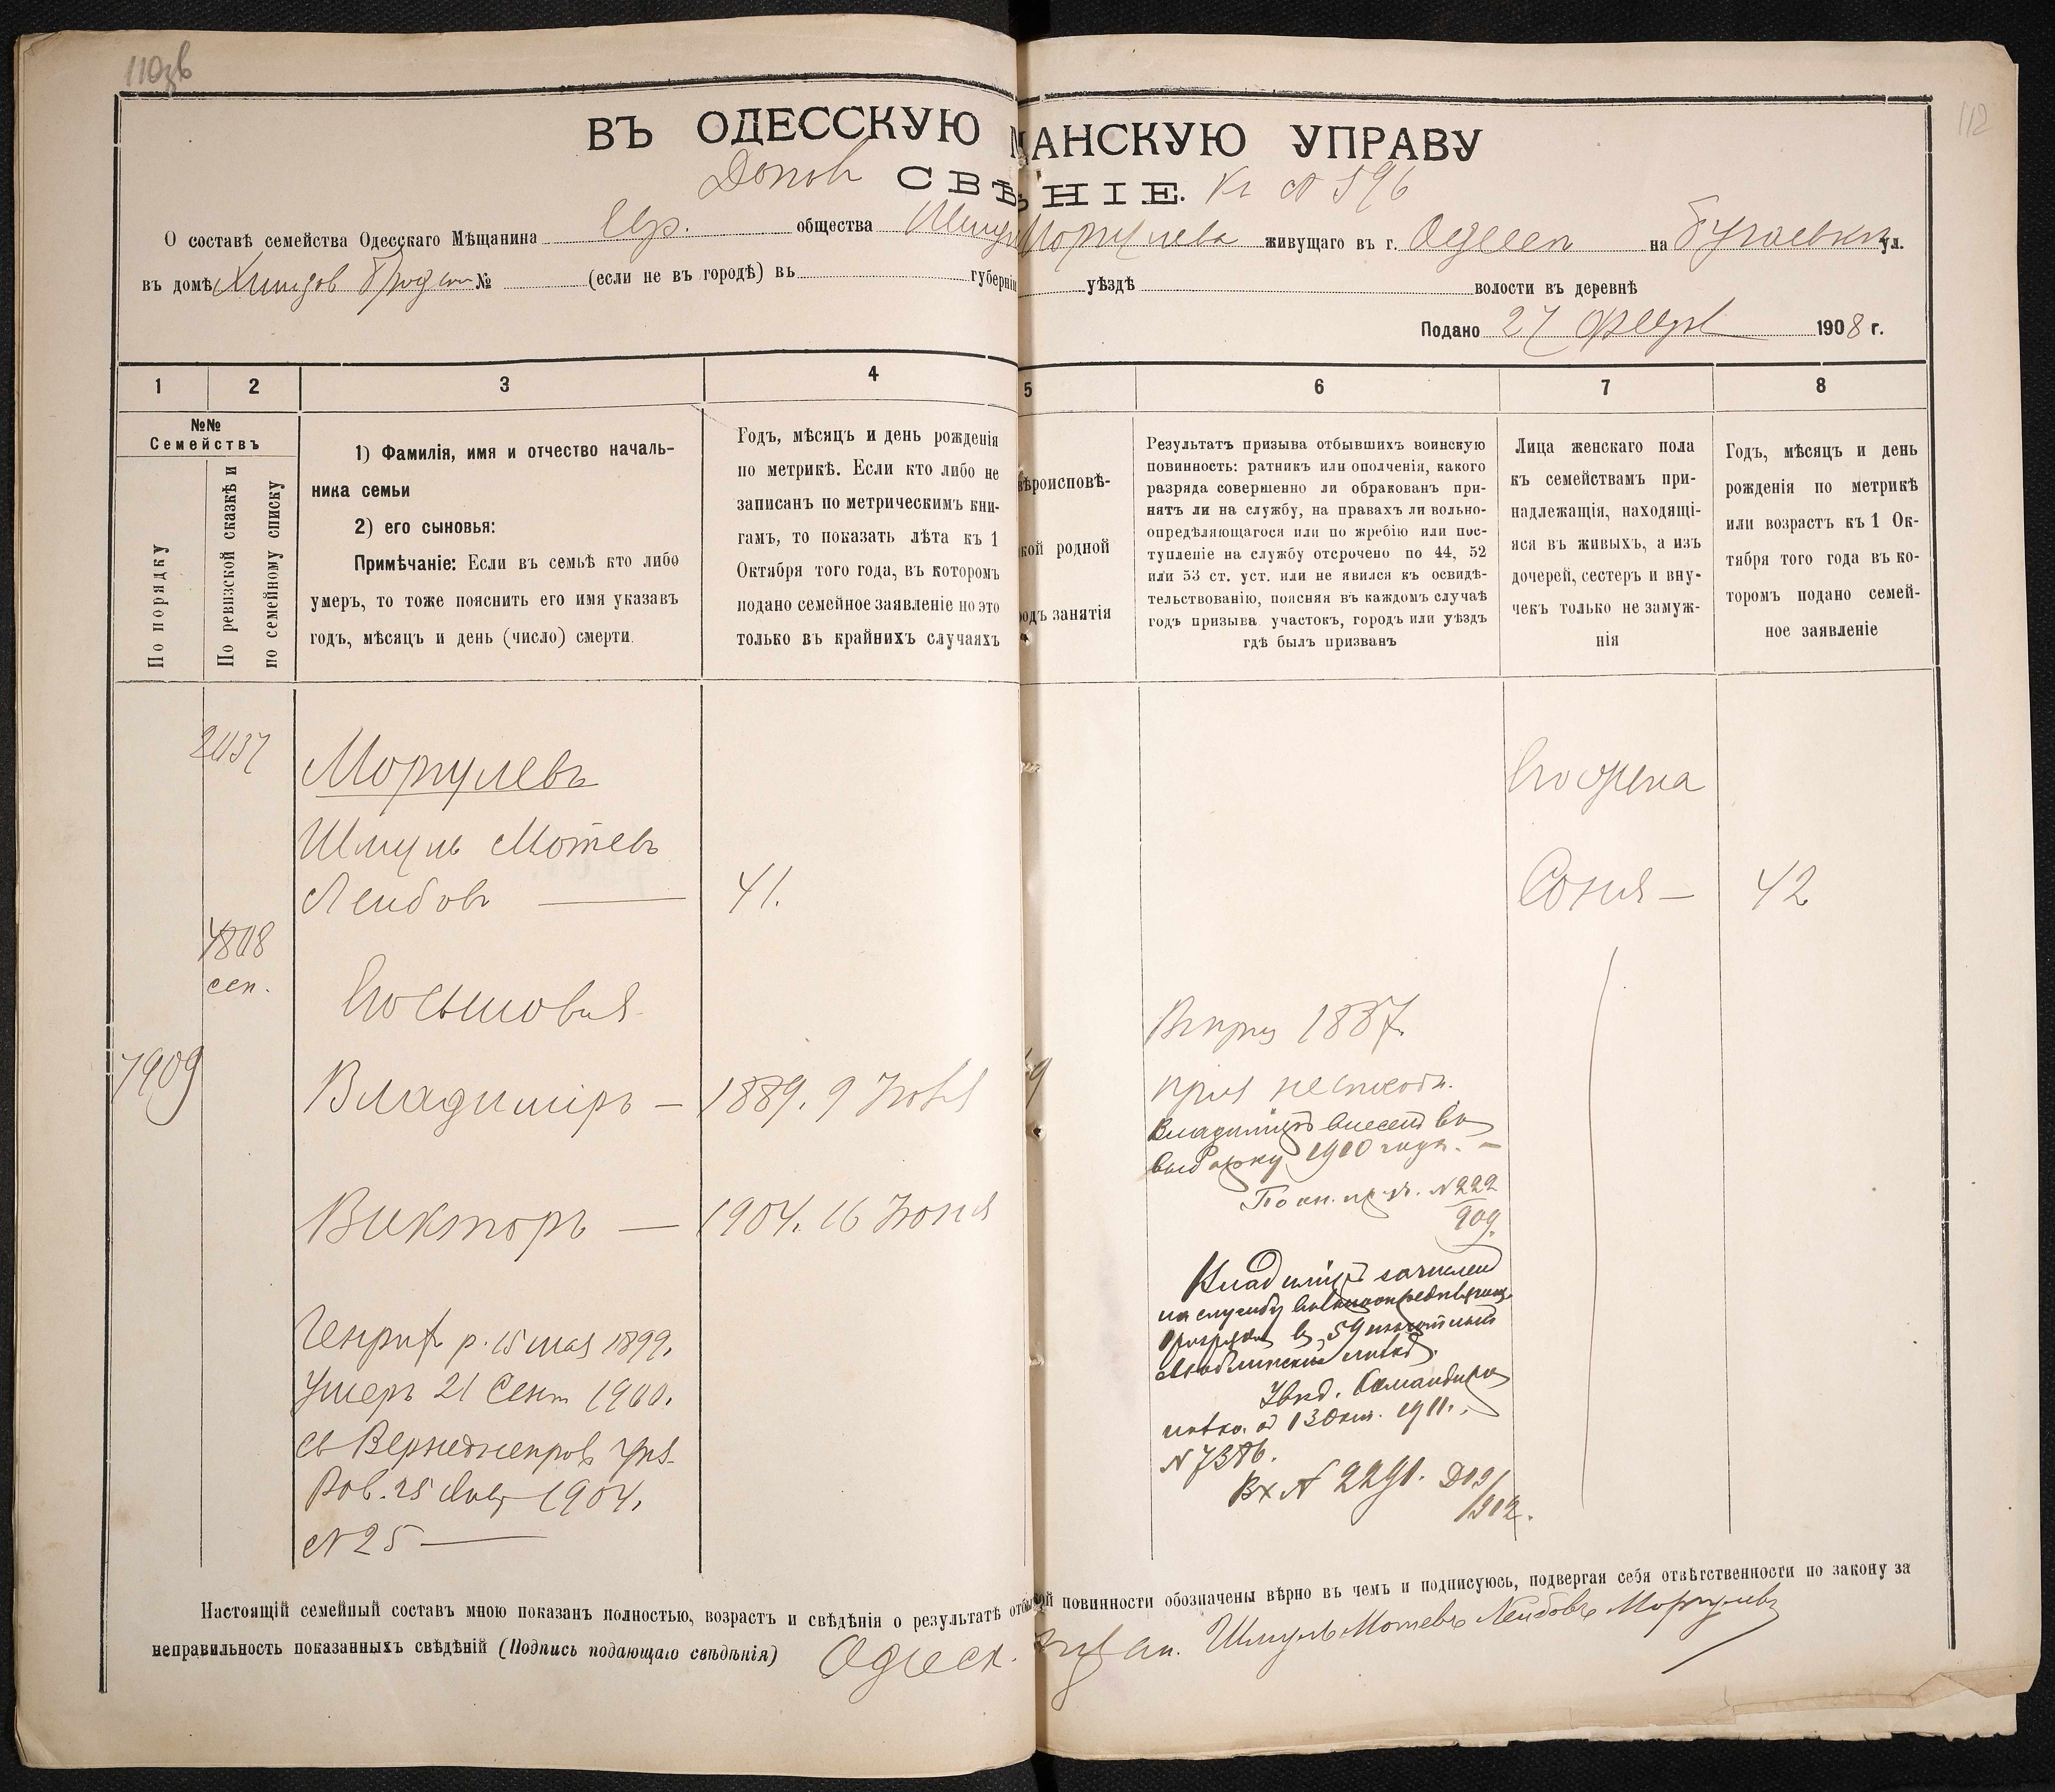 110зв
112
ВЪ ОДЕССКУЮ МѢЩАНСКУЮ УПРАВУ
СВѢ НІЕ. № 596
О составѣ семейства Одесскаго Мѣщанина Евр. общества Шмуля Моргулева живущаго въ г. Одессѣ на Бугаевкѣ ул.
въ домѣ № (если не въ городѣ) въ губерніи уѣздѣ волости въ деревнѣ
Подано 27 Февр 1908 г.
1 2 3 4 5 6 7 8
№№
Семействъ
По порядку
По ревизской сказкѣ и
по семейному списку
1) Фамилія, имя и отчество началь-
ника семьи
2) его сыновья:
Примѣчаніе: Если въ семьѣ кто либо
умеръ, то тоже пояснить его имя указавъ
годъ, мѣсяцъ и день (число) смерти.
Годъ, мѣсяцъ и день рожденія
по метрикѣ. Если кто либо не
записанъ по метрическимъ кни-
гамъ, то показать лѣта къ 1
Октября того года, въ которомъ
подано семейное заявленіе но это
только въ крайнихъ случаяхъ
вѣроисповѣ-
кой родной
одъ занятія
Результатъ призыва отбывшихъ воинскую
повинность: ратникъ или ополченія, какого
разряда совершенно ли обракованъ при-
нятъ ли на службу, на правахъ ли вольно-
опредѣляющагося или по жребію или пос-
тупленіе на службу отсрочено по 44, 52
или 53 ст. уст. или не явился къ освидѣ-
тельствованію, поясняя въ каждомъ случаѣ
годъ призыва участокъ, городъ или уѣздъ
гдѣ былъ призванъ
Лица женскаго пола
къ семействамъ при-
надлежащія, находящі-
яся въ живыхъ, а изъ
дочерей, сестеръ и вну-
чекъ только не замуж-
нія
Годъ, мѣсяцъ и день
рожденія по метрикѣ
или возрастъ къ 1 Ок-
тября того года въ ко-
торомъ подано семей-
ное заявленіе
2437
Моргулевъ
Его жена
Шмуль Мотевъ
Лейбовъ — 41.
Соня — 42
4808
сем.
Его сыновья
Въ приз 1887.
1909
Владиміръ — 1889. 9 Іюня
приз
Владиміръ внесенъ въ
1910 года. —
По вх. № 222
909.
Викторъ — 1904. 16 Іюня
Владиміръ зачисленъ
на службу вольноопредѣляющ.
разряда въ 59 пѣхотный
Люблинскій полкъ.
Увѣд. Командира
полка. от 13 Окт. 1911.
№ 7386.
Вх № 2291.
1912.
Генрих р. 15 мая 1899.
Умеръ 21 Сент 1900.
№ 25 —
Настоящій семейный составъ мною показанъ полностью, возрастъ и свѣдѣнія о результатѣ отбы кой повинности обозначены вѣрно въ чемъ и подписуюсь, подвергая себя отвѣтственности по закону за
неправильность показанныхъ свѣдѣній (Подпись подающаго свѣдѣнія) Одесск. Шмуль Мотевъ Лейбовъ Моргулевъ